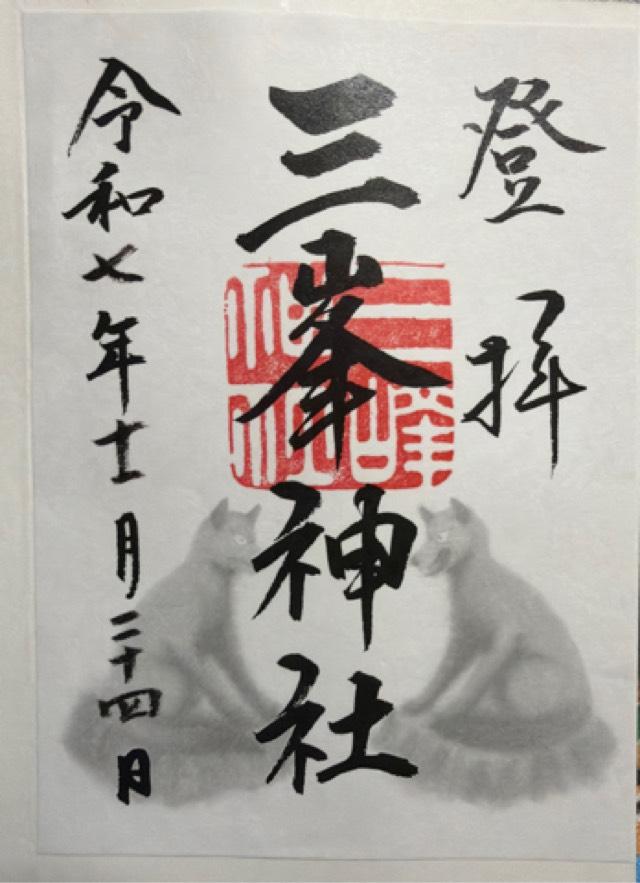 登拝
三峯神社
三峰神社
令和七年十一月二十四日